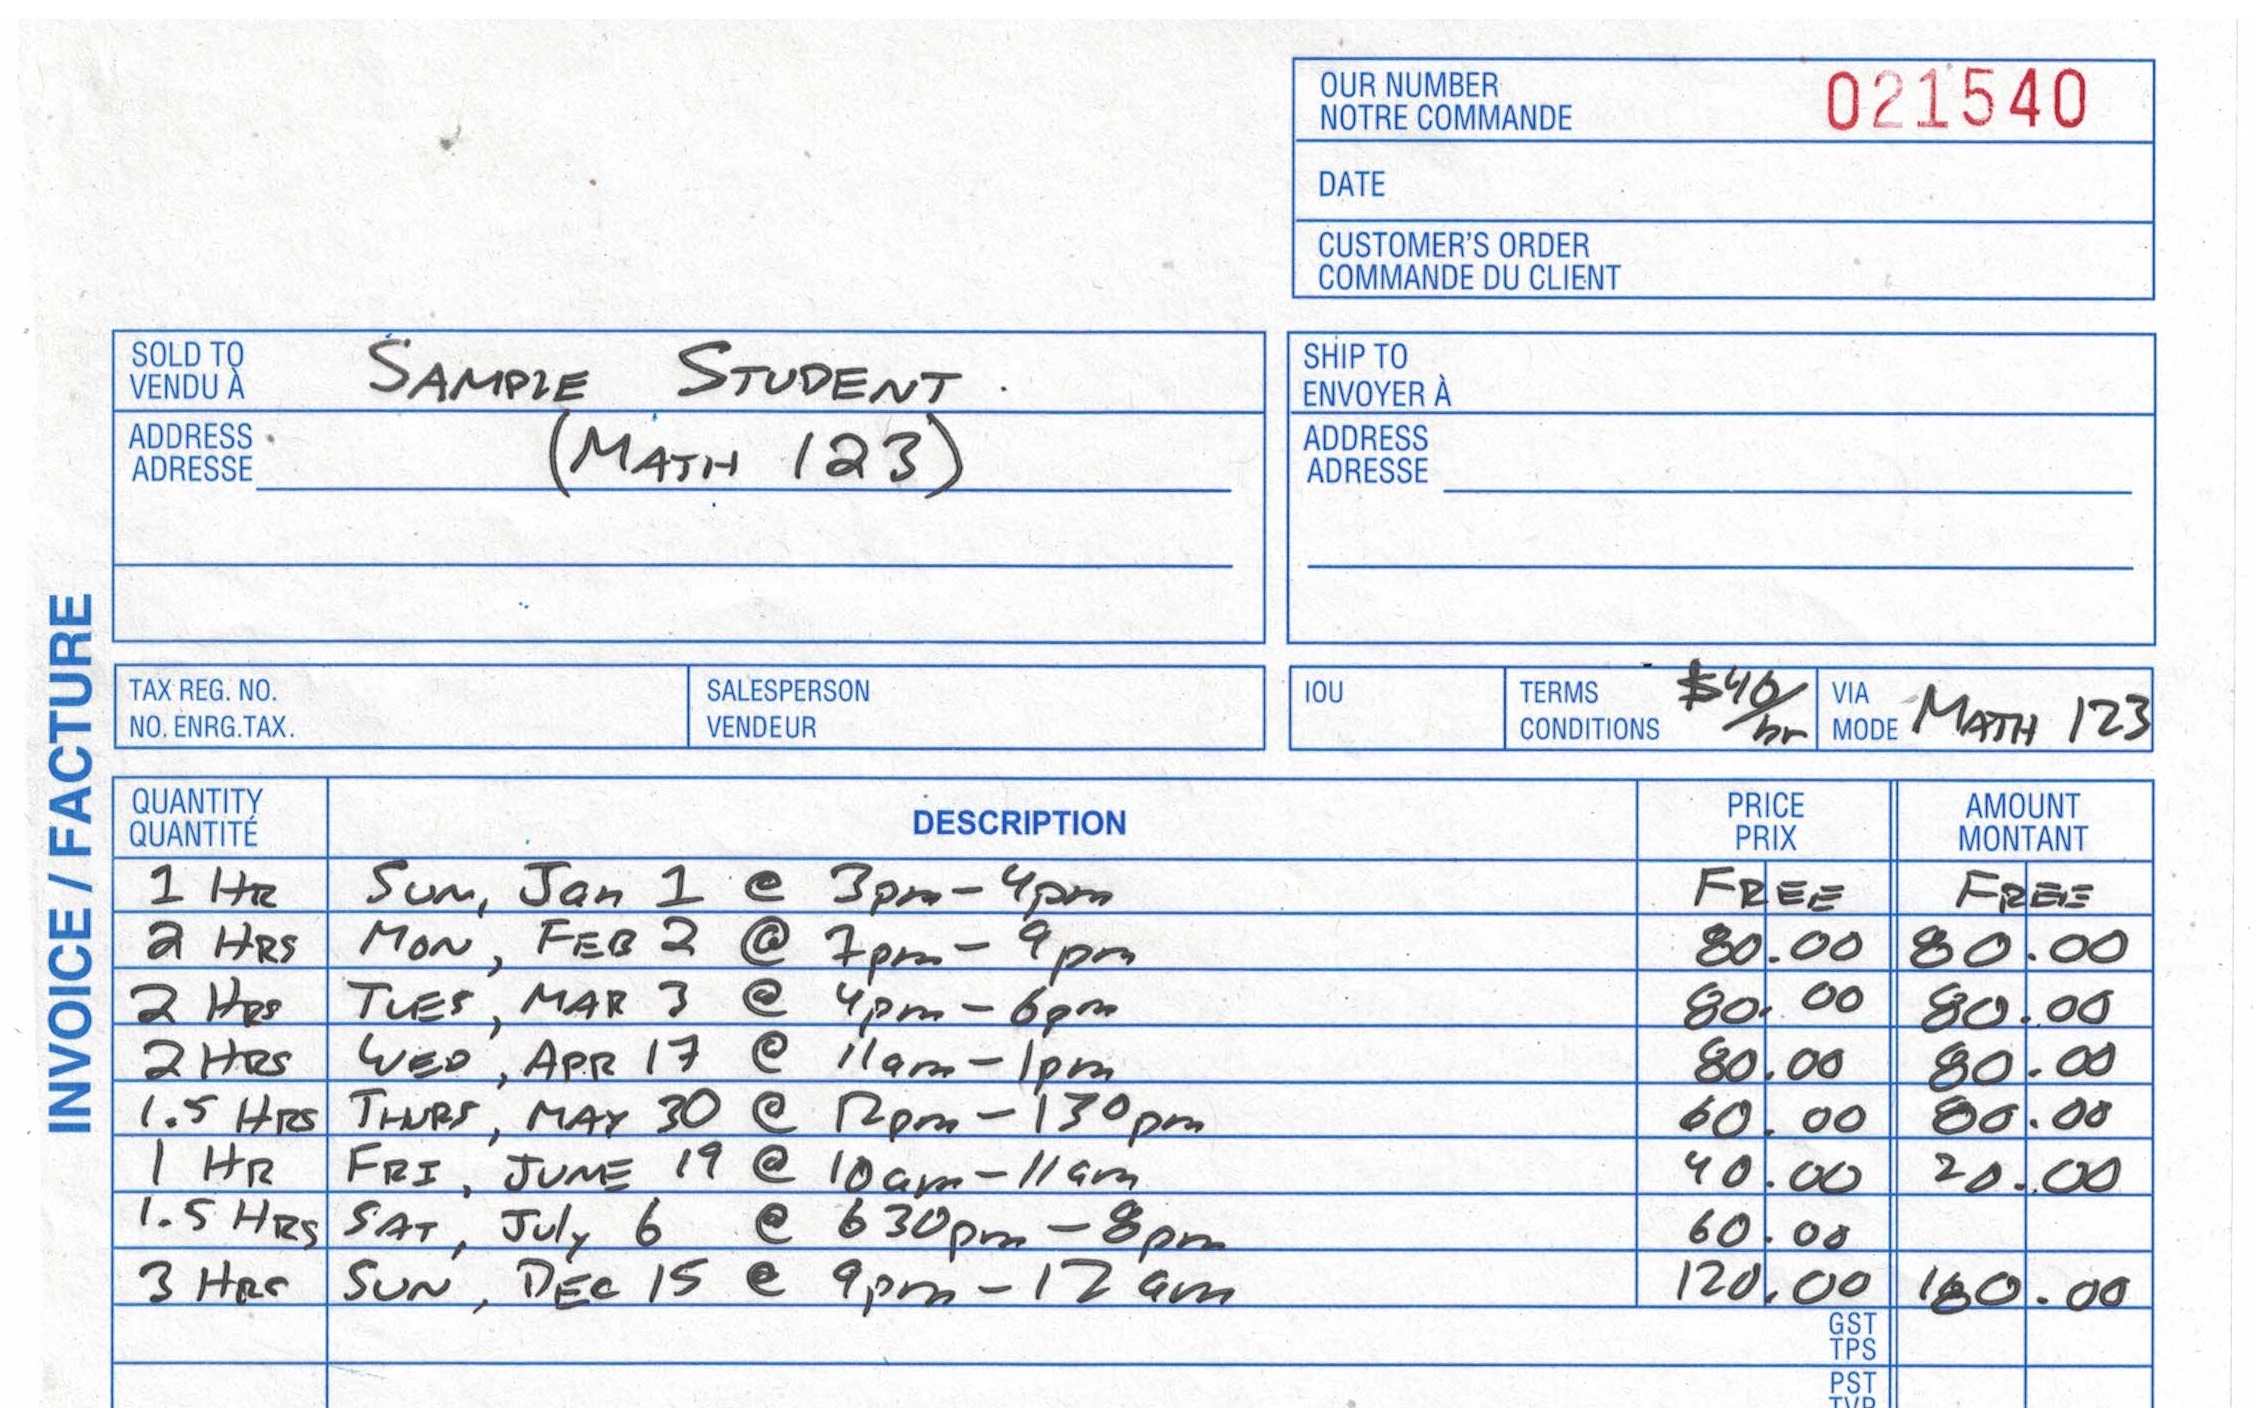 OUR NUMBER
NOTRE COMMANDE
021540
DATE
CUSTOMER'S ORDER
COMMANDE DU CLIENT
SOLD TO
VENDU À
SAMPLE STUDENT.
ADDRESS
ADRESSE
(MATH 123)
SHIP TO
ENVOYER À
ADDRESS
ADRESSE
INVOICE / FACTURE
TAX REG. NO.
NO. ENRG.TAX.
SALESPERSON
VENDEUR
IOU
TERMS
CONDITIONS
$40/hr
VIA
MODE
MATH 123
QUANTITY
QUANTITÉ
DESCRIPTION
PRICE
PRIX
AMOUNT
MONTANT
1 HR SUN, Jan 1 @ 3pm - 4pm FREE FREE
2 HRS MON, FEB 2 @ 7pm - 9pm 80.00 80.00
2 HRS TUES, MAR 3 @ 4pm - 6pm 80.00 80.00
2 HRS WED, APR 17 @ 11am - 1pm 80.00 80.00
1.5 HRS THURS, MAY 30 @ 12pm - 130pm 60.00 80.00
1 HR FRI, JUNE 19 @ 10am - 11am 40.00 20.00
1.5 HRS SAT, July 6 @ 630pm - 8pm 60.00
3 HRS SUN, DEC 15 @ 9pm - 12am 120.00 180.00
GST
TPS
PST
TVP